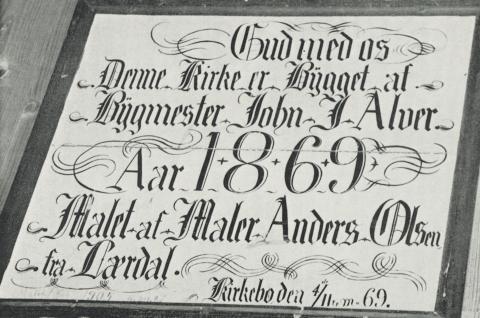 Gud med os
Denne Kirke er Bÿgget af
Bÿgmester John J Alver
Aar 1869
Malet af Maler Anders Olsen
fra Lærdal.
Kirkebo den 4/11 m-69.